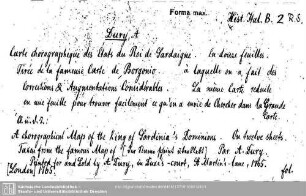 Forma max.
Hist. Ital. B. 2
Dury, A
Carte chorographique des Etats du Roi de Sardaigne. En douze feuilles.
Tirée de la fameuse Carte de Borgonio à laquelle on a fait des
Corrections & Augmentations Considerables. La même Carte reduite
en une feuille pour trouver facilement ce qu'on a envie de Chercher dans la Grande
Carte.
A chorographical Map of the King of Sardinia's Dominions. On twelve sheets.
Taken from the famous Map of Par A. Dury.
Printed for and Sold by A. Dury, in Duke's-court, St. Martin's-lane, 1765.
[London,] 1765. fol.